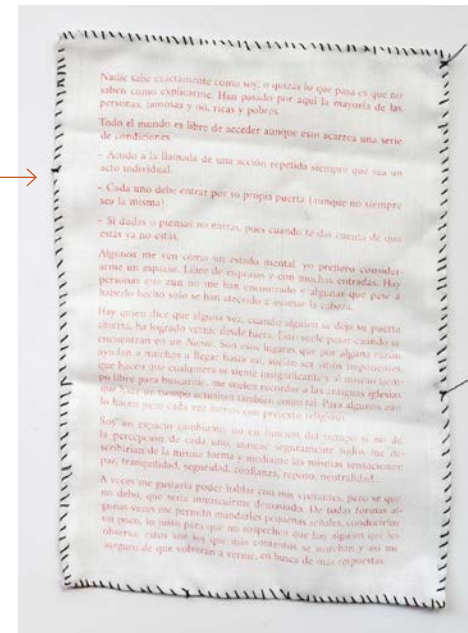 Nadie sabe exactamente como soy, o quizás lo que pasa es que no
saben como explicarme. Han pasado por aquí la mayoría de las
personas, famosas y no, ricas y pobres.
Todo el mundo es libre de acceder aunque esto acarrea una serie
de condiciones:
- Acudo a la llamada de una acción repetida siempre que sea un
acto individual.
- Cada uno debe entrar por su propia puerta (aunque no siempre
sea la misma).
- Si dudas o piensas no entras, pues cuando te das cuenta de que
estas ya no estás.
Algunos me ven como un estado mental, yo prefiero consider-
arme un espacio. Libre de esquinas y con muchas entradas. Hay
personas que aun no me han encontrado y algunas que pese a
haberlo hecho solo se han atrevido a asomar la cabeza.
Hay quien dice que alguna vez, cuando alguien se dejó su puerta
abierta, ha logrado verme desde fuera. Esto suele pasar cuando se
encuentran en un Son esos lugares que por alguna razón
ayudan a muchos a llegar hasta mi, suelen ser sitios imponentes
que hacen que cualquiera se siente insignificante y al mismo tiem-
po libre para buscarme, me suelen recordar a las antiguas iglesias
que hace un tiempo actuaban también como tal. Para algunos aún
lo hacen pero cada vez menos con pretexto religioso.
Soy un espacio cambiante, no en función del tiempo si no de
la percepción de cada uno, aunque seguramente todos me de-
scribirían de la misma forma y mediante las mismas sensaciones:
paz, tranquilidad, seguridad, confianza, reposo, neutralidad...
A veces me gustaría poder hablar con mis visitantes, pero sé que
no debo, que sería inmiscuirme demasiado. De todas formas al-
gunas veces me permito mandarles pequeñas señales, conducirlos
un poco, lo justo para que no sospechen que hay alguien que les
observa, estos son los que más contentos se marchan y así me
aseguro de que volverán a verme, en busca de más respuestas.